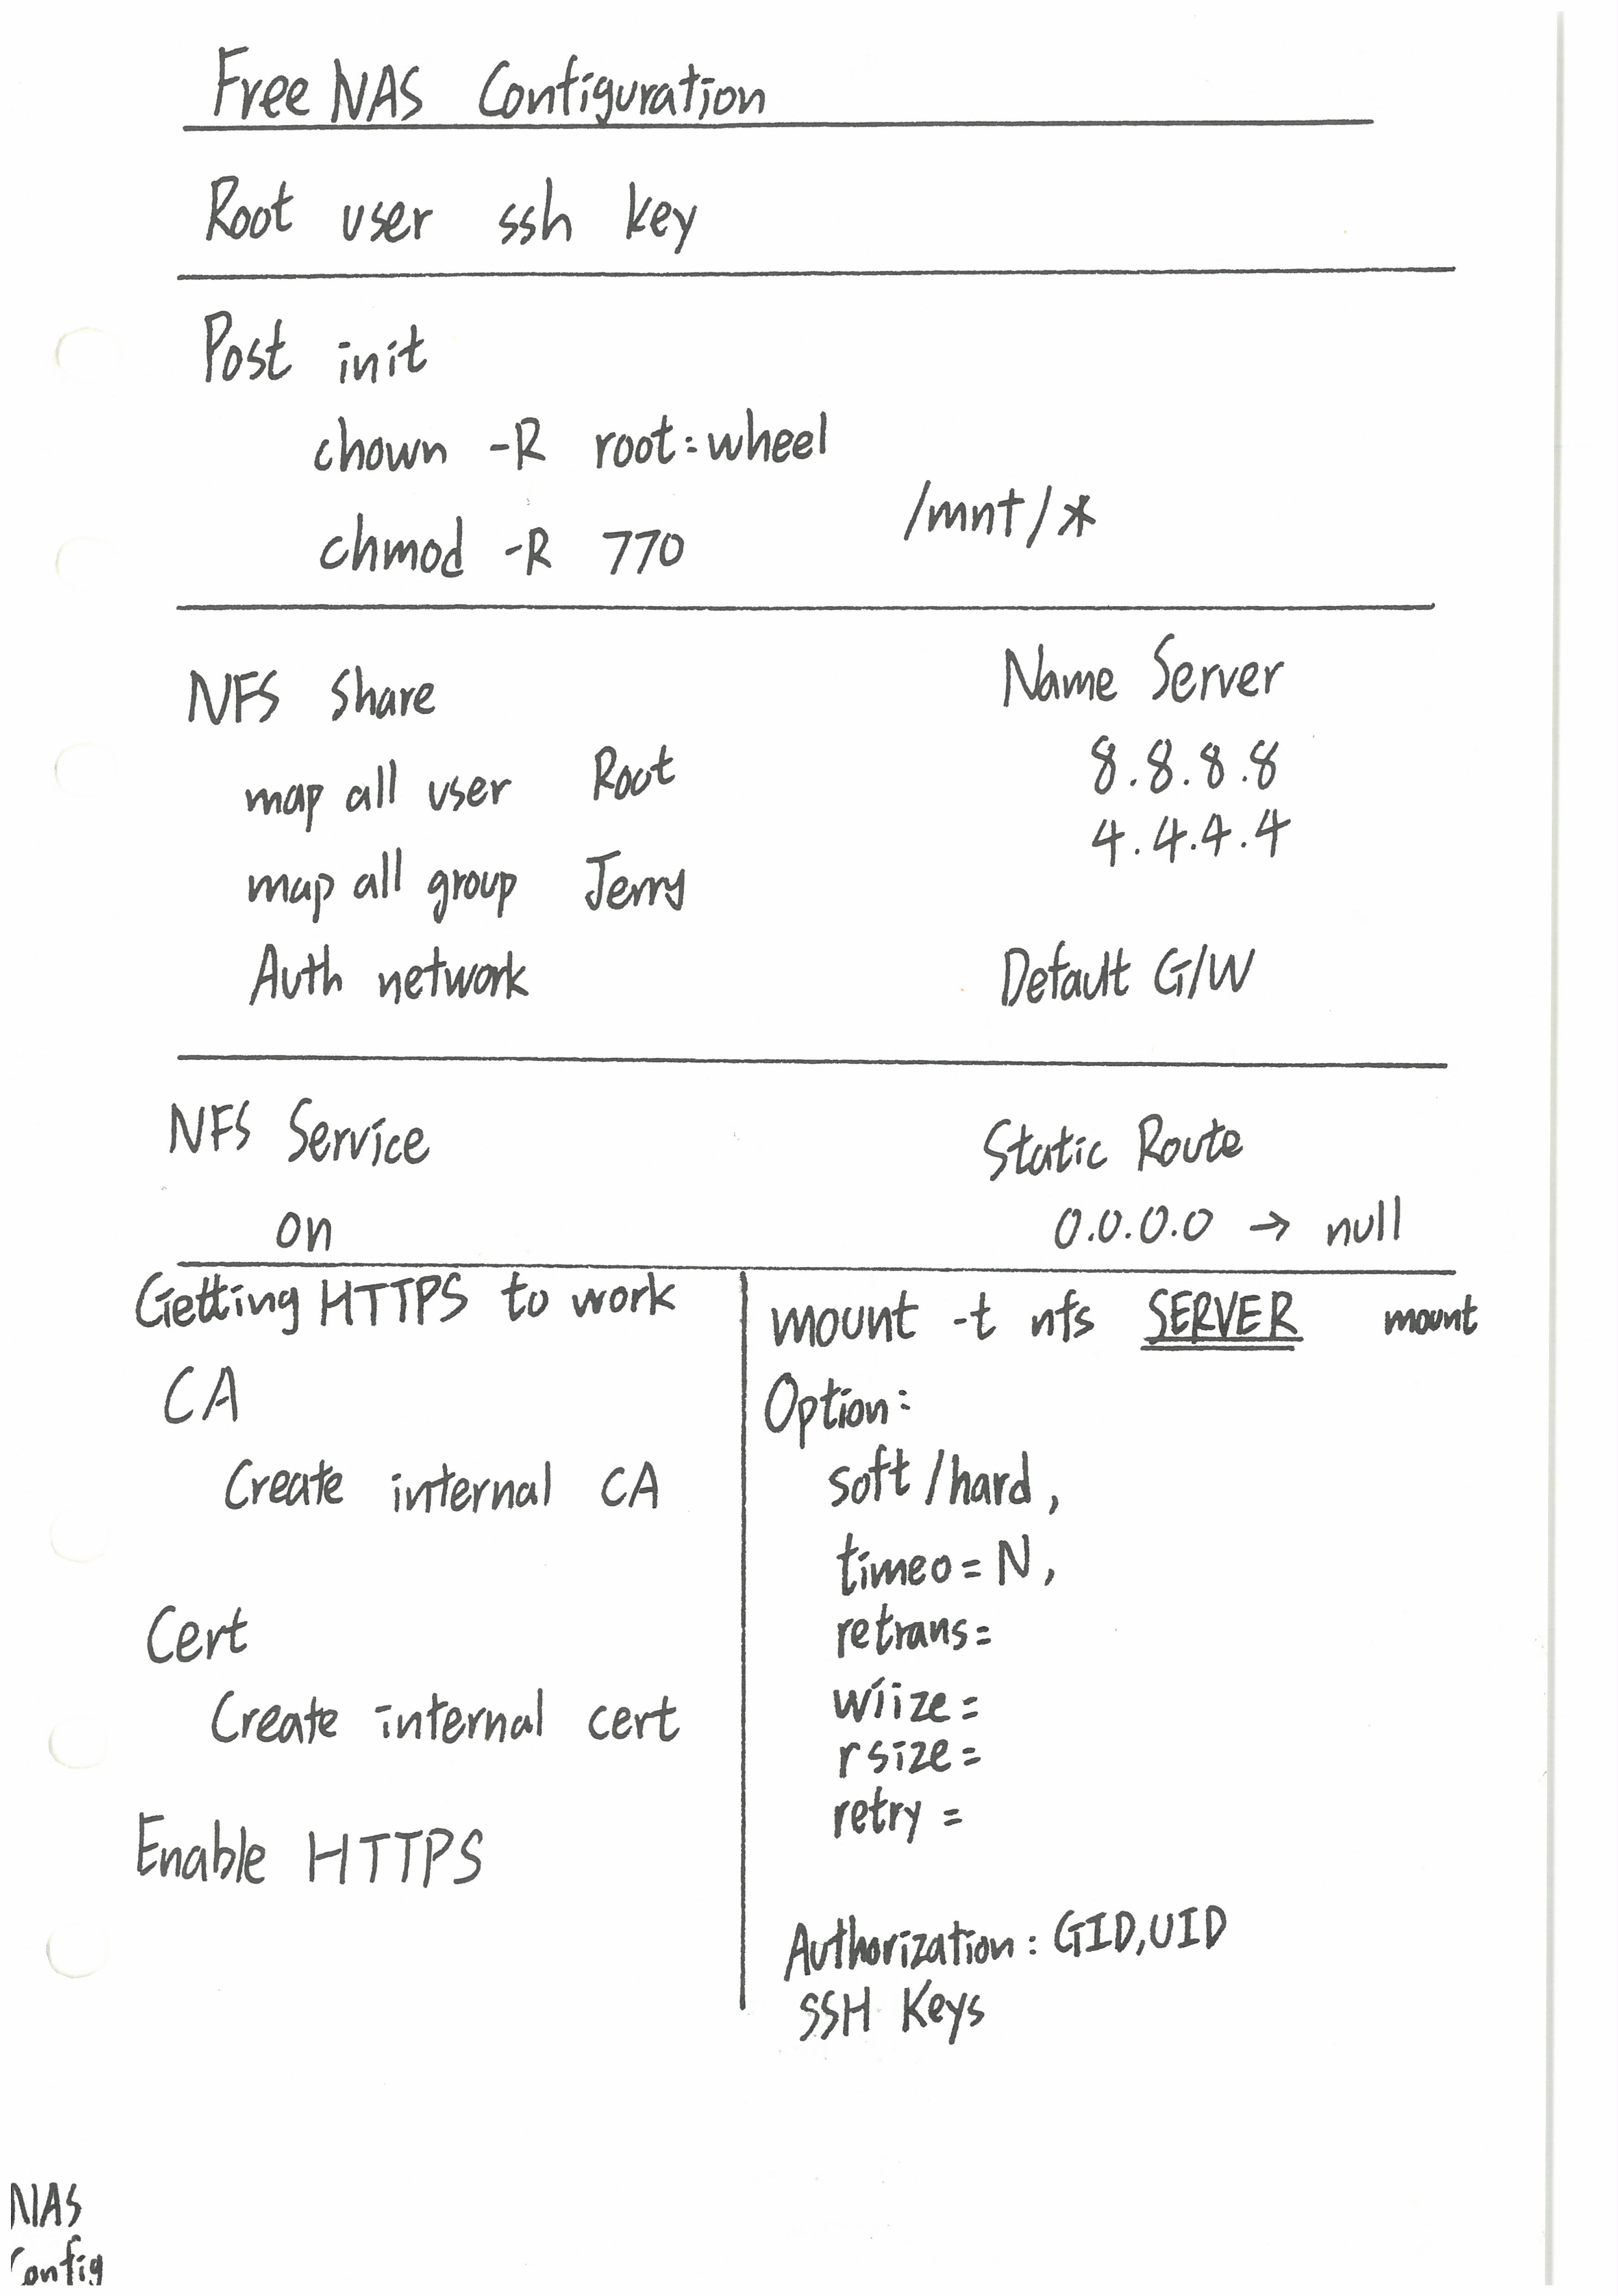 Free NAS Configuration
Root user ssh key
Post init
chown -R root:wheel
/mnt/*
chmod -R 770
NFS Share
map all user Root
map all group Jerry
Auth network
Name Server
8.8.8.8
4.4.4.4
Default G/W
NFS Service
on
Static Route
0.0.0.0 → null
Getting HTTPS to work
CA
Create internal CA
Cert
Create internal cert
Enable HTTPS
mount -t nfs SERVER mount
Option:
soft/hard,
timeo=N,
retrans=
wiize=
rsize=
retry=
Authorization: GID,UID
SSH Keys
NAS
Config